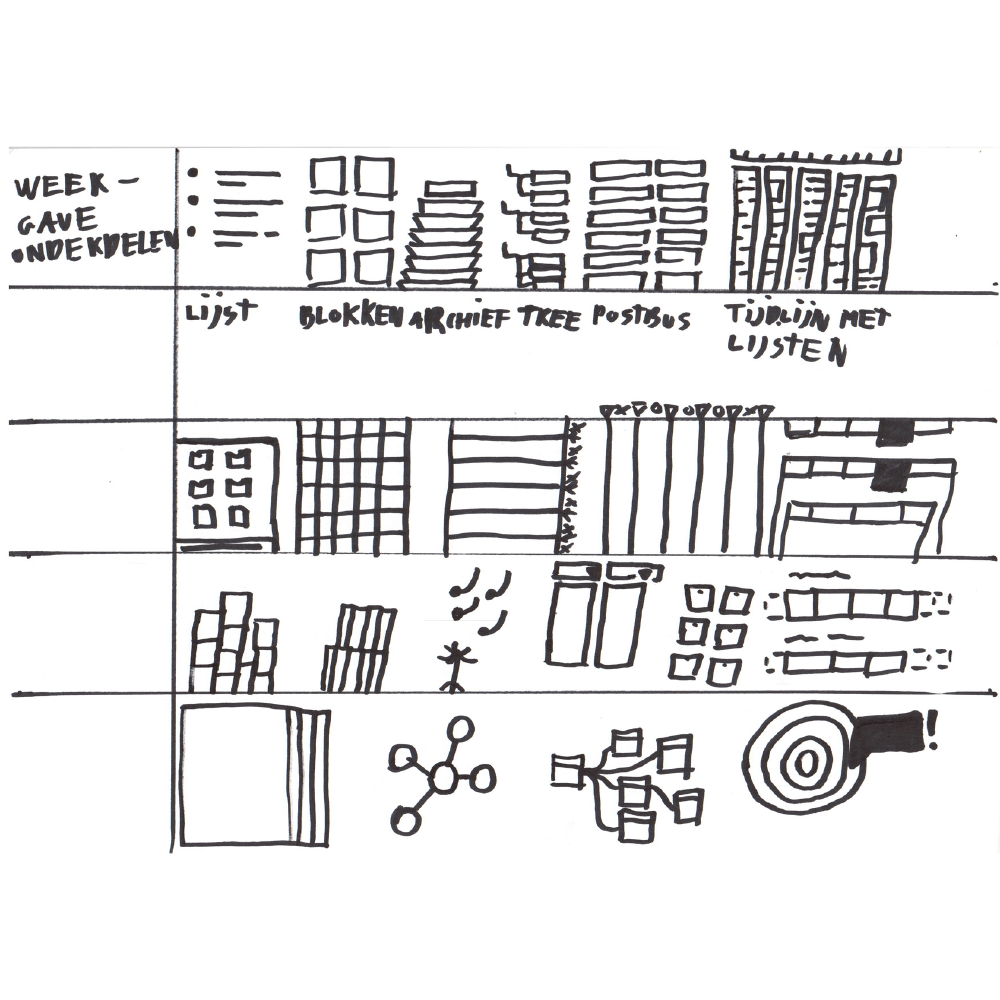 WEEK-
GAVE
ONDERDELEN
LIJST
BLOKKEN ARCHIEF TREE POSTBUS
TIJDLIJN MET
LIJSTEN